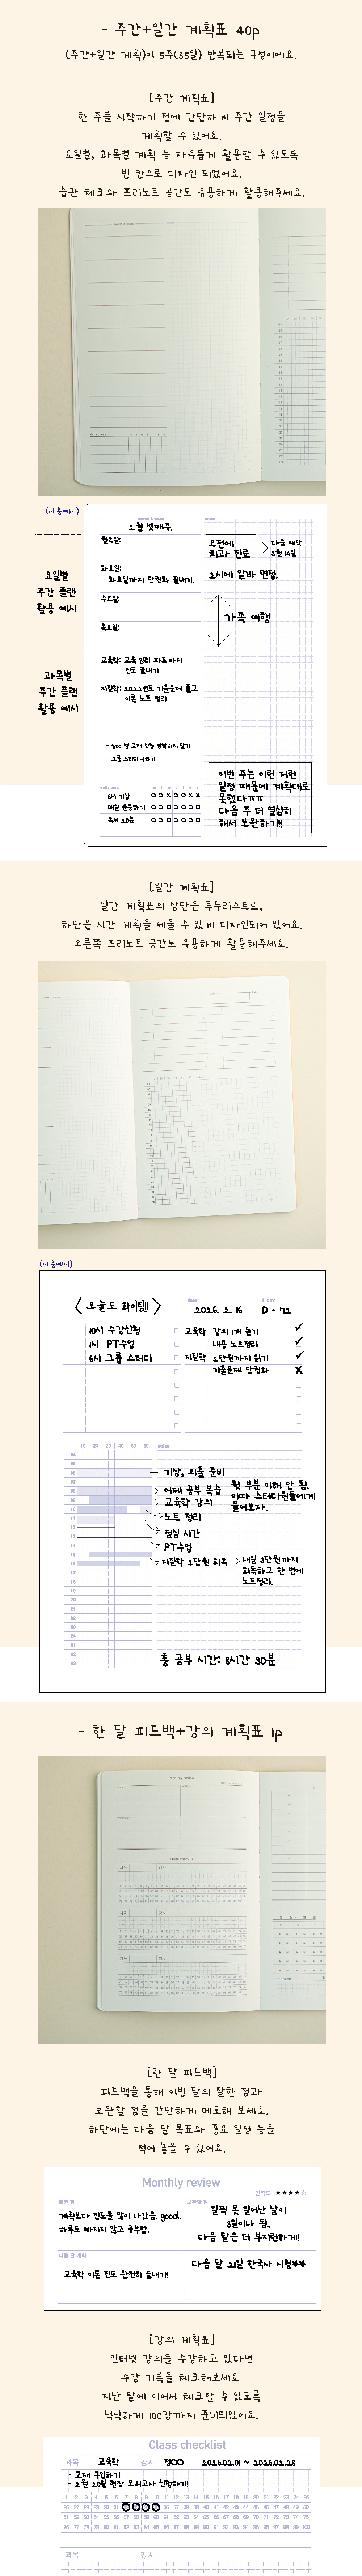 - 주간+일간 계획표 40p
(주간+일간 계획)이 5주(35일) 반복되는 구성이에요.
[주간 계획표]
한 주를 시작하기 전에 간단하게 주간 일정을
계획할 수 있어요.
요일별, 과목별 계획 등 자유롭게 활용할 수 있도록
빈 칸으로 디자인 되었어요.
습관 체크와 프리노트 공간도 유용하게 활용해주세요.
(사용예시)
요일별
주간 플랜
활용 예시
과목별
주간 플랜
활용 예시
month & week
2월 셋째주.
notes
월요일:
화요일:
화요일까지 단권화 끝내기.
수요일:
목요일:
교육학: 교육 심리 파트까지
진도 끝내기
지필학: 2022년도 기출문제 풀고
이론 노트 정리
- 그룹 스터디 구하기
daily check
M T W T F S S
6시 기상 O O X O O X X
매일 운동하기 O O O O O O O
독서 20분 O O O O O O O
오전에
치과 진료
다음 예약
3월 14일
2시에 알바 면접.
가족 여행
이번 주는 이런 저런
일정 때문에 계획대로
못했다ㅠㅠ
다음 주 더 열심히
해서 보완하기!!
[일간 계획표]
일간 계획표의 상단은 투두리스트로,
하단은 시간 계획을 세울 수 있게 디자인되어 있어요.
오른쪽 프리노트 공간도 유용하게 활용해주세요.
(사용예시)
< 오늘도 화이팅!! >
date
2026. 2. 16
d-day
D - 72
10시 수강신청
1시 PT수업
6시 그룹 스터디
교육학 강의 1개 듣기
내용 노트정리
지필학 2단원까지 읽기
기출문제 단권화
10 20 30 40 50 60 notes
04
05
06
07
08
09
10
11
12
13
14
15
16
17
18
19
20
21
22
23
24
01
02
03
기상, 외출 준비
어제 공부 복습
교육학 강의
노트 정리
점심 시간
PT수업
지필학 2단원 회독
뒷 부분 이해 안 됨.
이따 스터디원들에게
물어보자.
내일 3단원까지
회독하고 한 번에
노트정리.
총 공부 시간: 8시간 30분
- 한 달 피드백+강의 계획표 1p
Monthly review
Class checklist
[한 달 피드백]
피드백을 통해 이번 달의 잘한 점과
보완할 점을 간단하게 메모해 보세요.
하단에는 다음 달 목표와 중요 일정 등을
적어 놓을 수 있어요.
Monthly review
만족도 ★★★★☆
잘한 점
계획보다 진도를 많이 나갔음. good.
하루도 빠지지 않고 공부함.
보완할 점
일찍 못 일어난 날이
3일이나 됨..
다음 달은 더 부지런하게!
다음 달 계획
교육학 이론 진도 완전히 끝내기!
다음 달 21일 한국사 시험★★
[강의 계획표]
인터넷 강의를 수강하고 있다면
수강 기록을 체크해보세요.
지난 달에 이어서 체크할 수 있도록
넉넉하게 100강까지 준비되었어요.
Class checklist
과목 교육학 강사 정OO 2026.02.01 ~ 2026.02.28
- 교재 구입하기
- 2월 20일 현장 모의고사 신청하기!
1 2 3 4 5 6 7 8 9 10 11 12 13 14 15 16 17 18 19 20 21 22 23 24 25
과목 강사